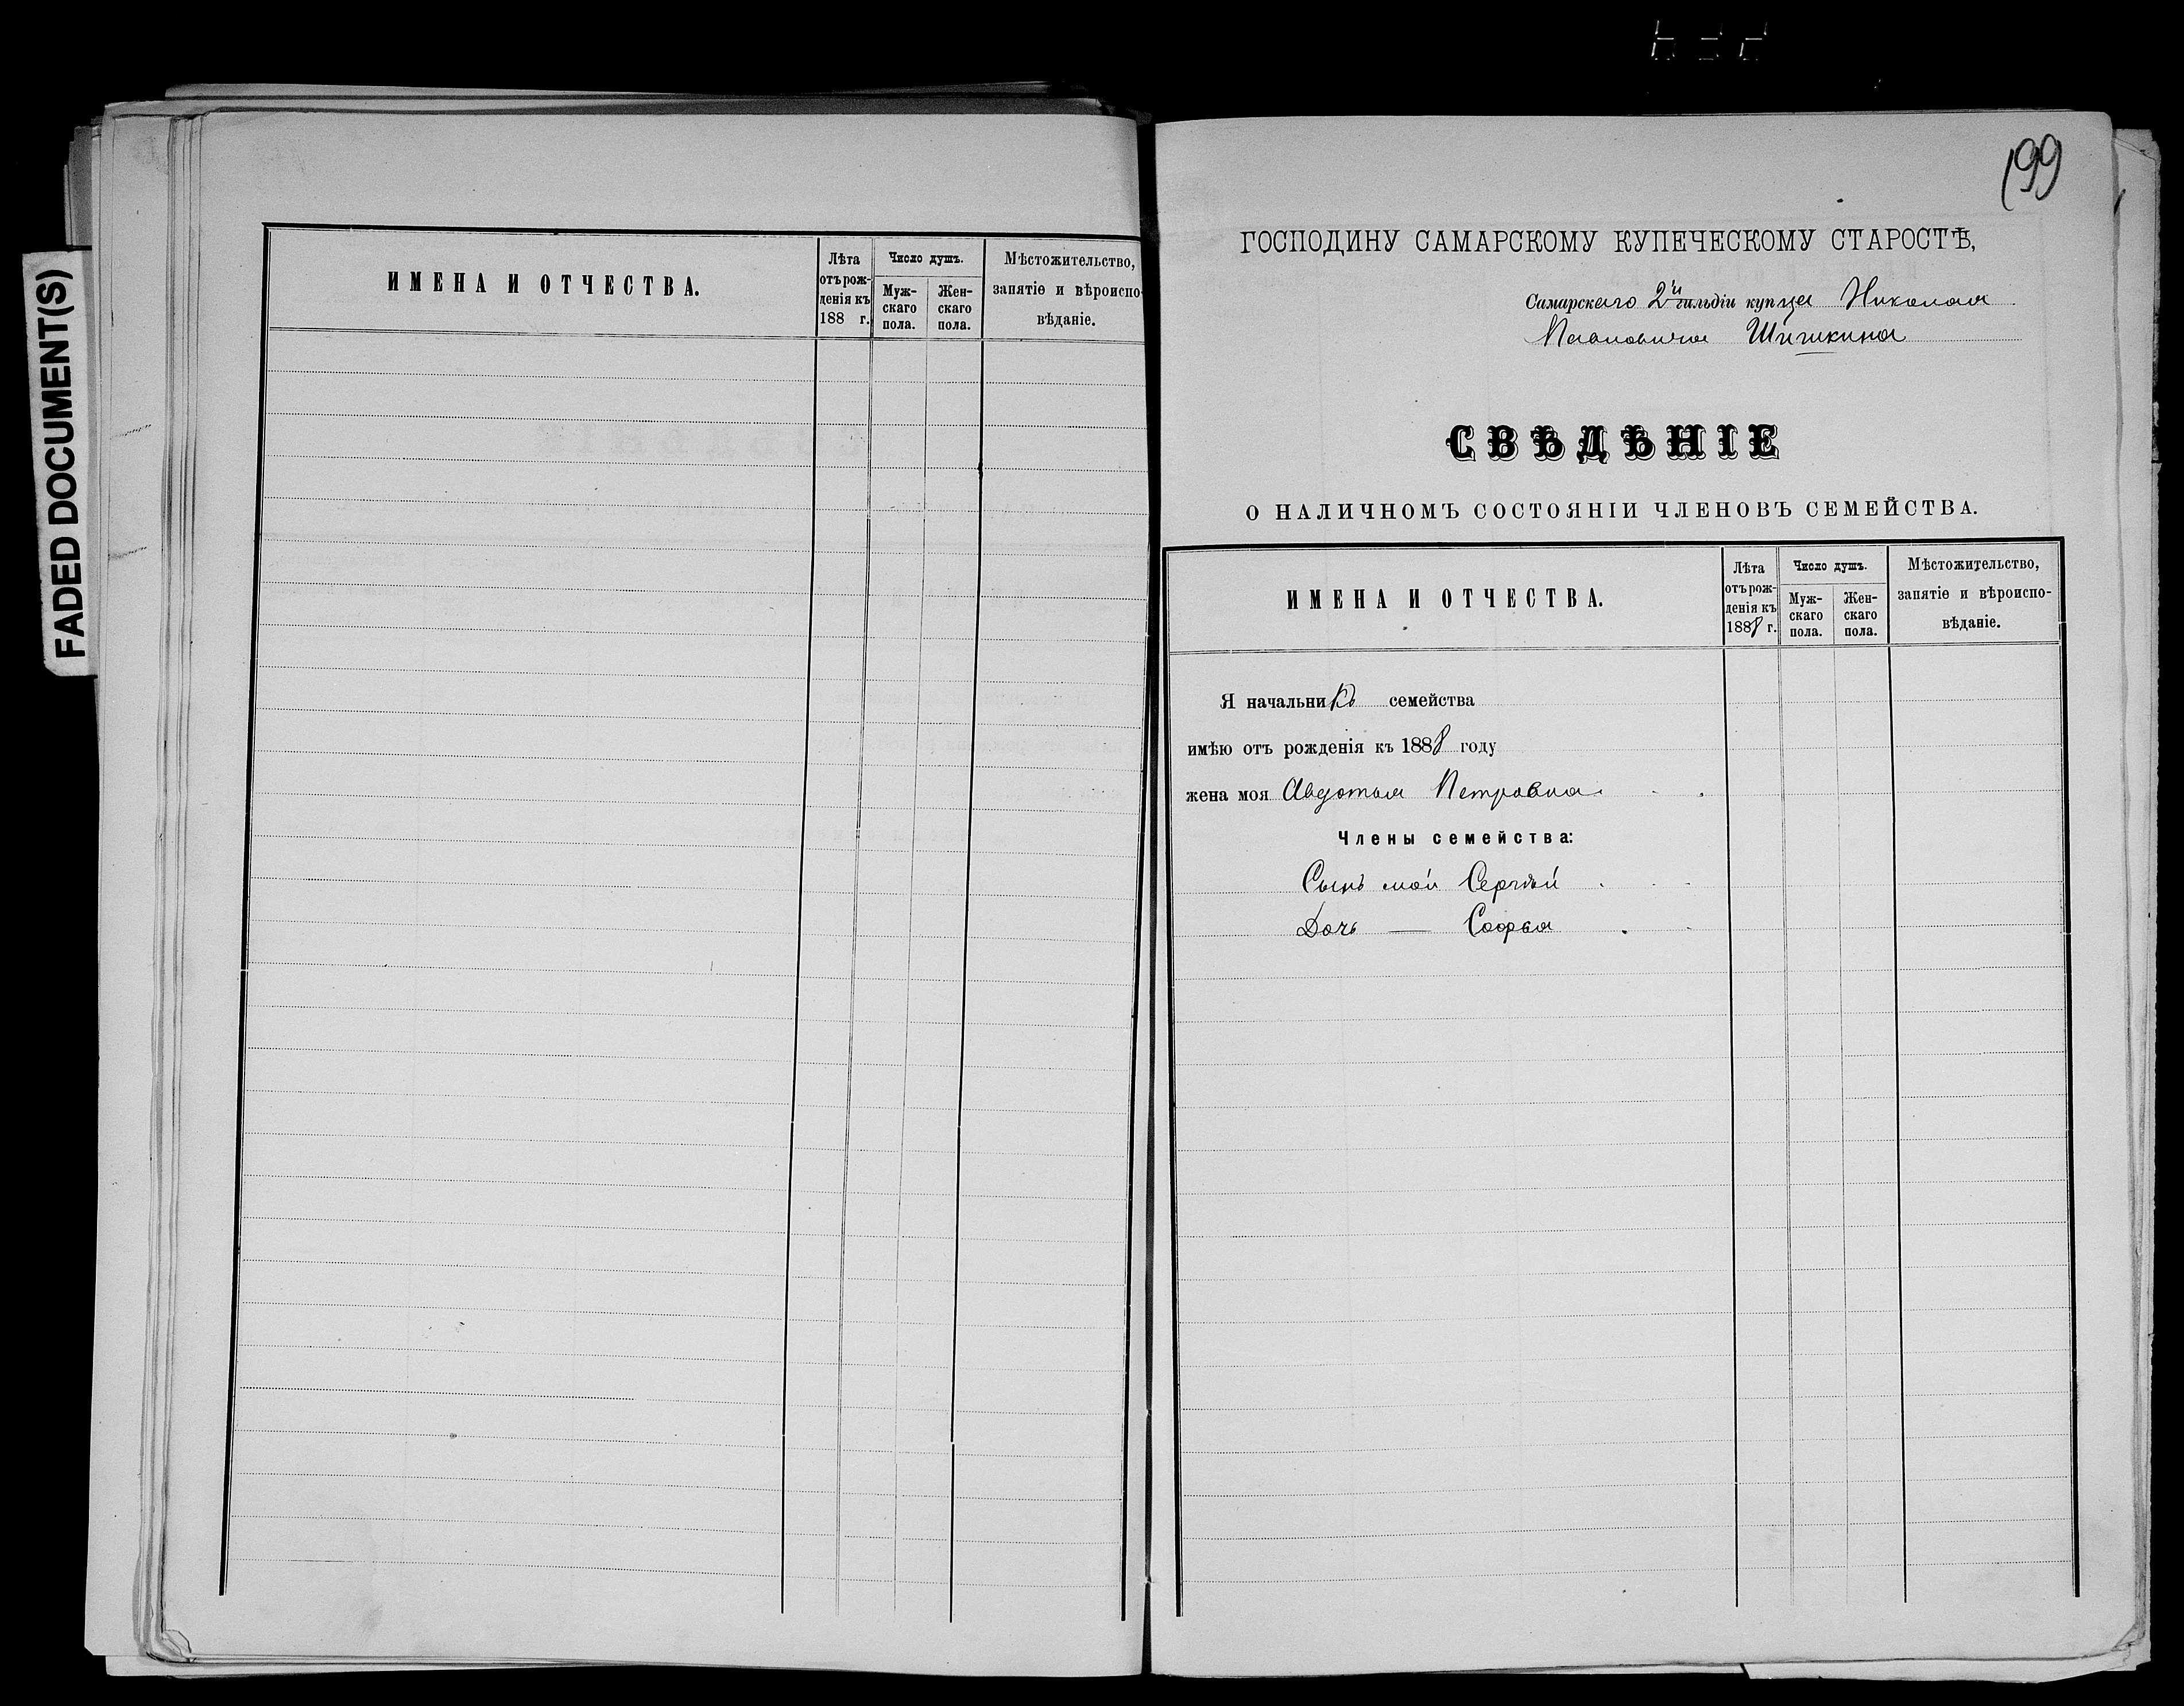 FADED DOCUMENT(S)
ИМЕНА И ОТЧЕСТВА.
Лѣта
отъ рож-
денія къ
188 г.
Число душъ.
Муж-
скаго
пола.
Жен-
скаго
пола.
Мѣстожительство,
занятіе и вѣроиспо-
вѣданіе.
199
ГОСПОДИНУ САМАРСКОМУ КУПЕЧЕСКОМУ СТАРОСТѢ,
Самарскаго 2й гильдіи купца Николая
Павловича Шишкина
СВѢДѢНІЕ
О НАЛИЧНОМЪ СОСТОЯНІИ ЧЛЕНОВЪ СЕМЕЙСТВА.
ИМЕНА И ОТЧЕСТВА.
Лѣта
отъ рож-
денія къ
1888 г.
Число душъ.
Муж-
скаго
пола.
Жен-
скаго
пола.
Мѣстожительство,
занятіе и вѣроиспо-
вѣданіе.
Я начальникъ семейства
имѣю отъ рожденія къ 1888 году
жена моя Авдотья Петровна
Члены семейства:
Сынъ мой Сергѣй
Дочь — Софья